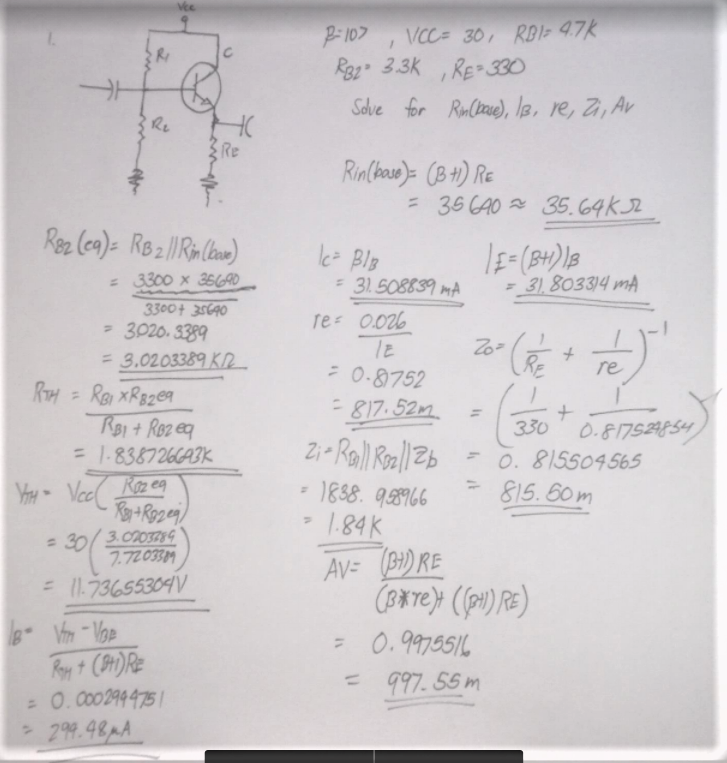 1.
Vcc
R1
C
R2
RE
β=107 , VCC= 30, RB1= 4.7K
RB2= 3.3K , RE=330
Solve for Rin(base), IB, re, Zi, Av
Rin(base)= (β+1) RE
= 35640 ≈ 35.64KΩ
RB2(eq)= RB2//Rin(base)
= 3300 × 35640
3300 + 35640
= 3,020.3389
= 3.0203389 KΩ
RTH = RB1 × RB2eq
RB1 + RB2eq
= 1.838726643K
VTH= Vcc( RB2eq
RB1+RB2eq )
= 30( 3.0203389
7.7203389 )
= 11.73655304V
IB= VTH - VBE
RTH + (β+1)RE
= 0.0002944751
= 299.48μA
Ic= βIB
= 31.508839 mA
IE=(β+1)IB
= 31.803314 mA
re= 0.026
IE
= 0.81752
= 817.52m
Zo= ( 1/RE + 1/re )-1
= ( 1/330 + 1/0.817524834 )
= 0.815504565
= 815.50m
Zi= RB1//RB2//Zb
= 1838.958966
= 1.84K
AV= (β+1) RE
(β*re)+ ((β+1) RE)
= 0.9975516
= 997.55m